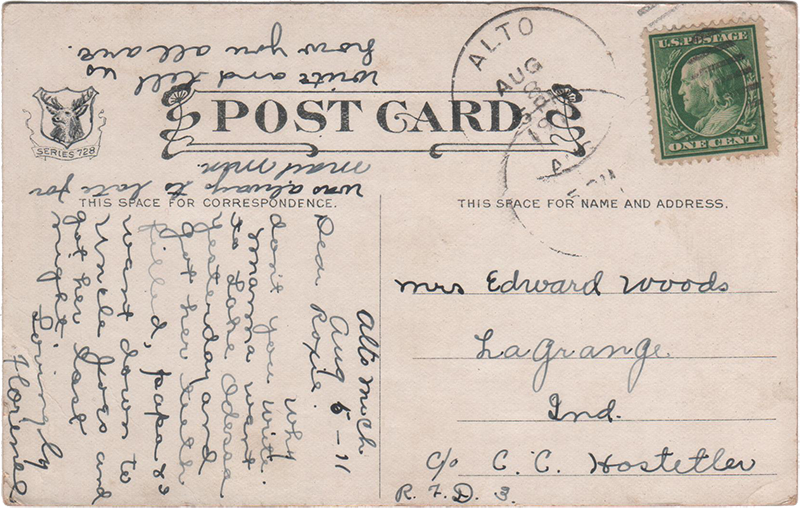 POST CARD
SERIES 728
ALTO
AUG
U.S. POSTAGE
ONE CENT
THIS SPACE FOR CORRESPONDENCE.
THIS SPACE FOR NAME AND ADDRESS.
Alto Mich
Aug 5-11
Dear Roxie.
Why
don't you write.
Mama went
to Lake Odessa
yesterday and
got her teeth
filled, papa &
went down to
Uncle Joes and
got her last
night.
Lovingly
Florence
was always to late for
mail man.
write and tell us
how you all are.
Mrs Edward Woods
LaGrange.
Ind.
c/o C. C. Hostetler
R. F. D. 3.